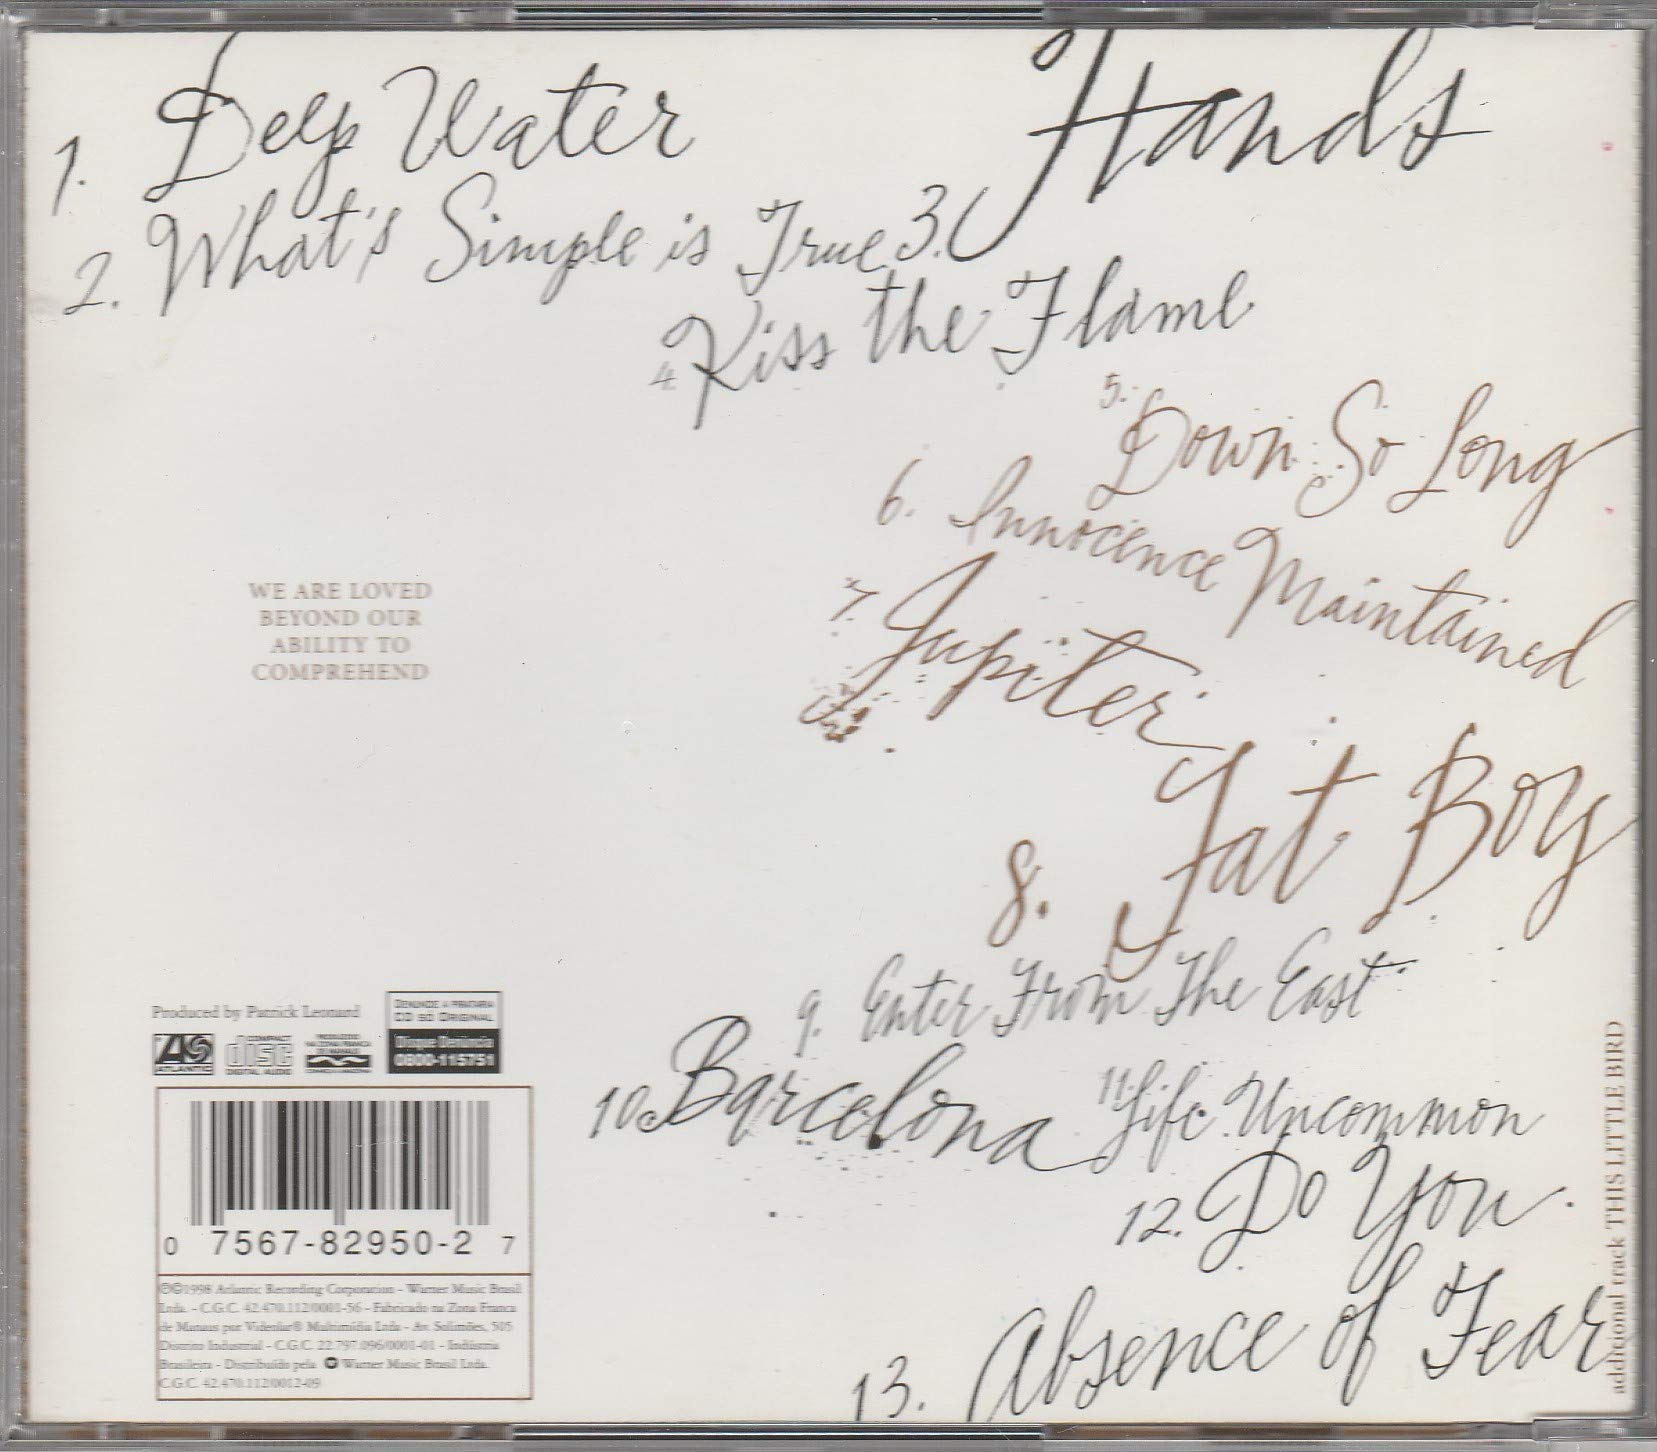 1. Deep Water
2. What's Simple is True
3. Hands
4. Kiss the Flame
5. Down So Long
6. Innocence Maintained
7. Jupiter
8. Fat Boy
9. Enter From The East
10. Barcelona
11. Life Uncommon
12. Do You
13. Absence of Fear
WE ARE LOVED
BEYOND OUR
ABILITY TO
COMPREHEND
Produced by Patrick Leonard
DENUNCIE A PIRATARIA
CD SÓ ORIGINAL
Disque Denúncia
0800-115751
ATLANTIC
COMPACT
disc
DIGITAL AUDIO
PRODUZIDO
NA ZONA FRANCA
DE MANAUS
0 7567-82950-2 7
℗©1998 Atlantic Recording Corporation - Warner Music Brasil
Ltda. - C.G.C. 42.470.112/0001-56 - Fabricado na Zona Franca
de Manaus por Videolar® Multimídia Ltda - Av. Solimões, 505
Distrito Industrial - C.G.C. 22.797.096/0001-01 - Indústria
Brasileira - Distribuído pela Warner Music Brasil Ltda.
C.G.C. 42.470.112/0012-09
addicional track THIS LITTLE BIRD